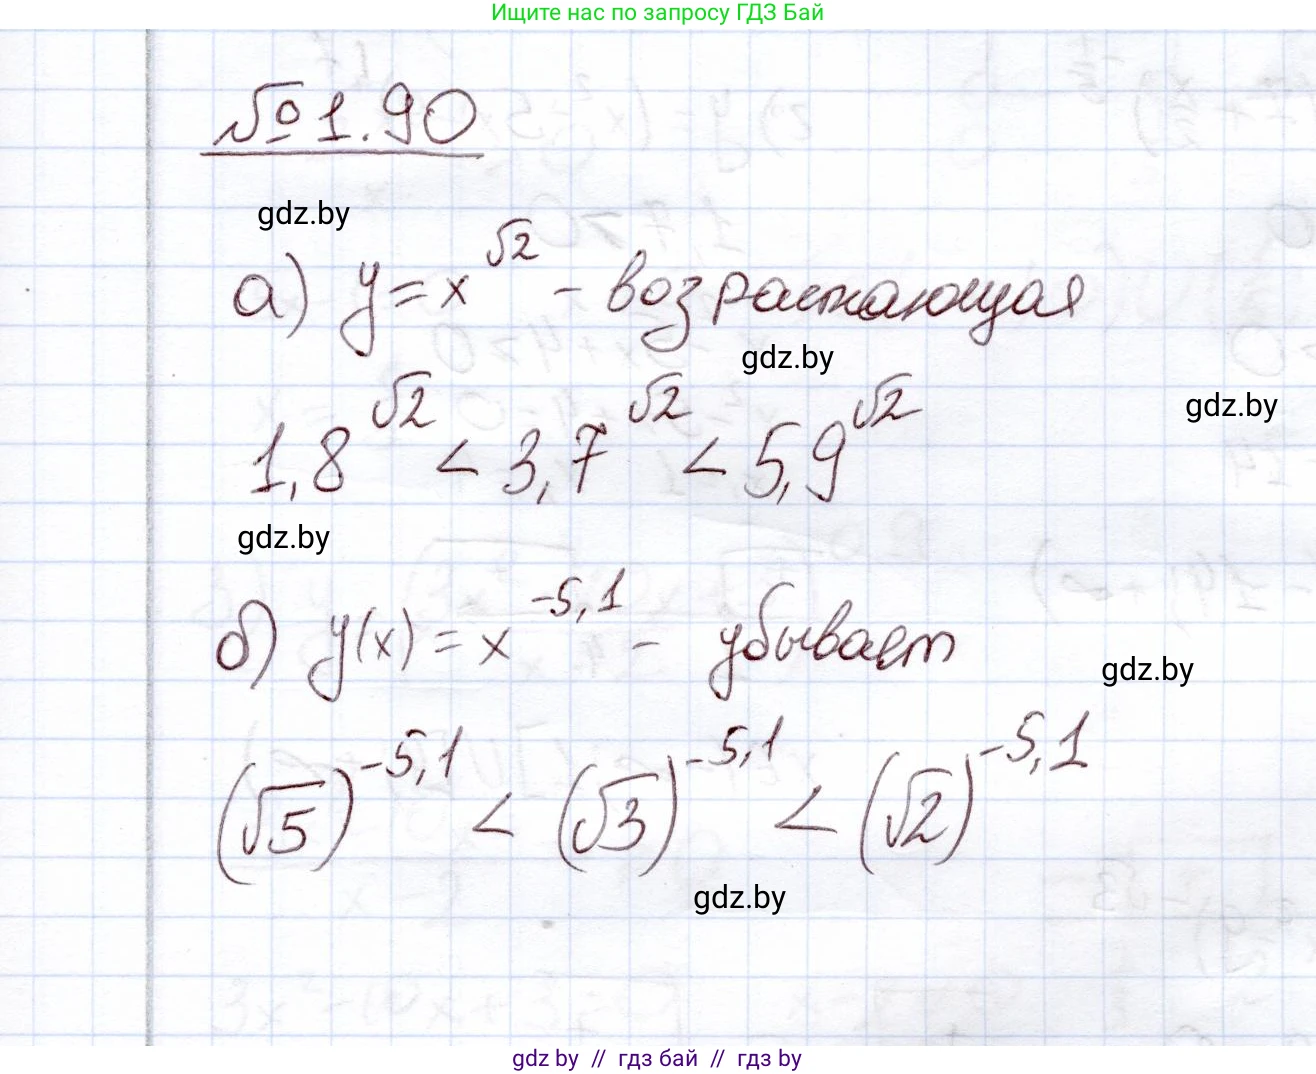 Ищите нас по запросу ГДЗ Бай
№1.90
gdz.by
а) y = x^√2 - возрастающая
gdz.by
gdz.by
1,8^√2 < 3,7^√2 < 5,9^√2
gdz.by
б) y(x) = x^-5,1 - убывает
gdz.by
(√5)^-5,1 < (√3)^-5,1 < (√2)^-5,1
gdz.by
gdz by // гдз бай // гдз by